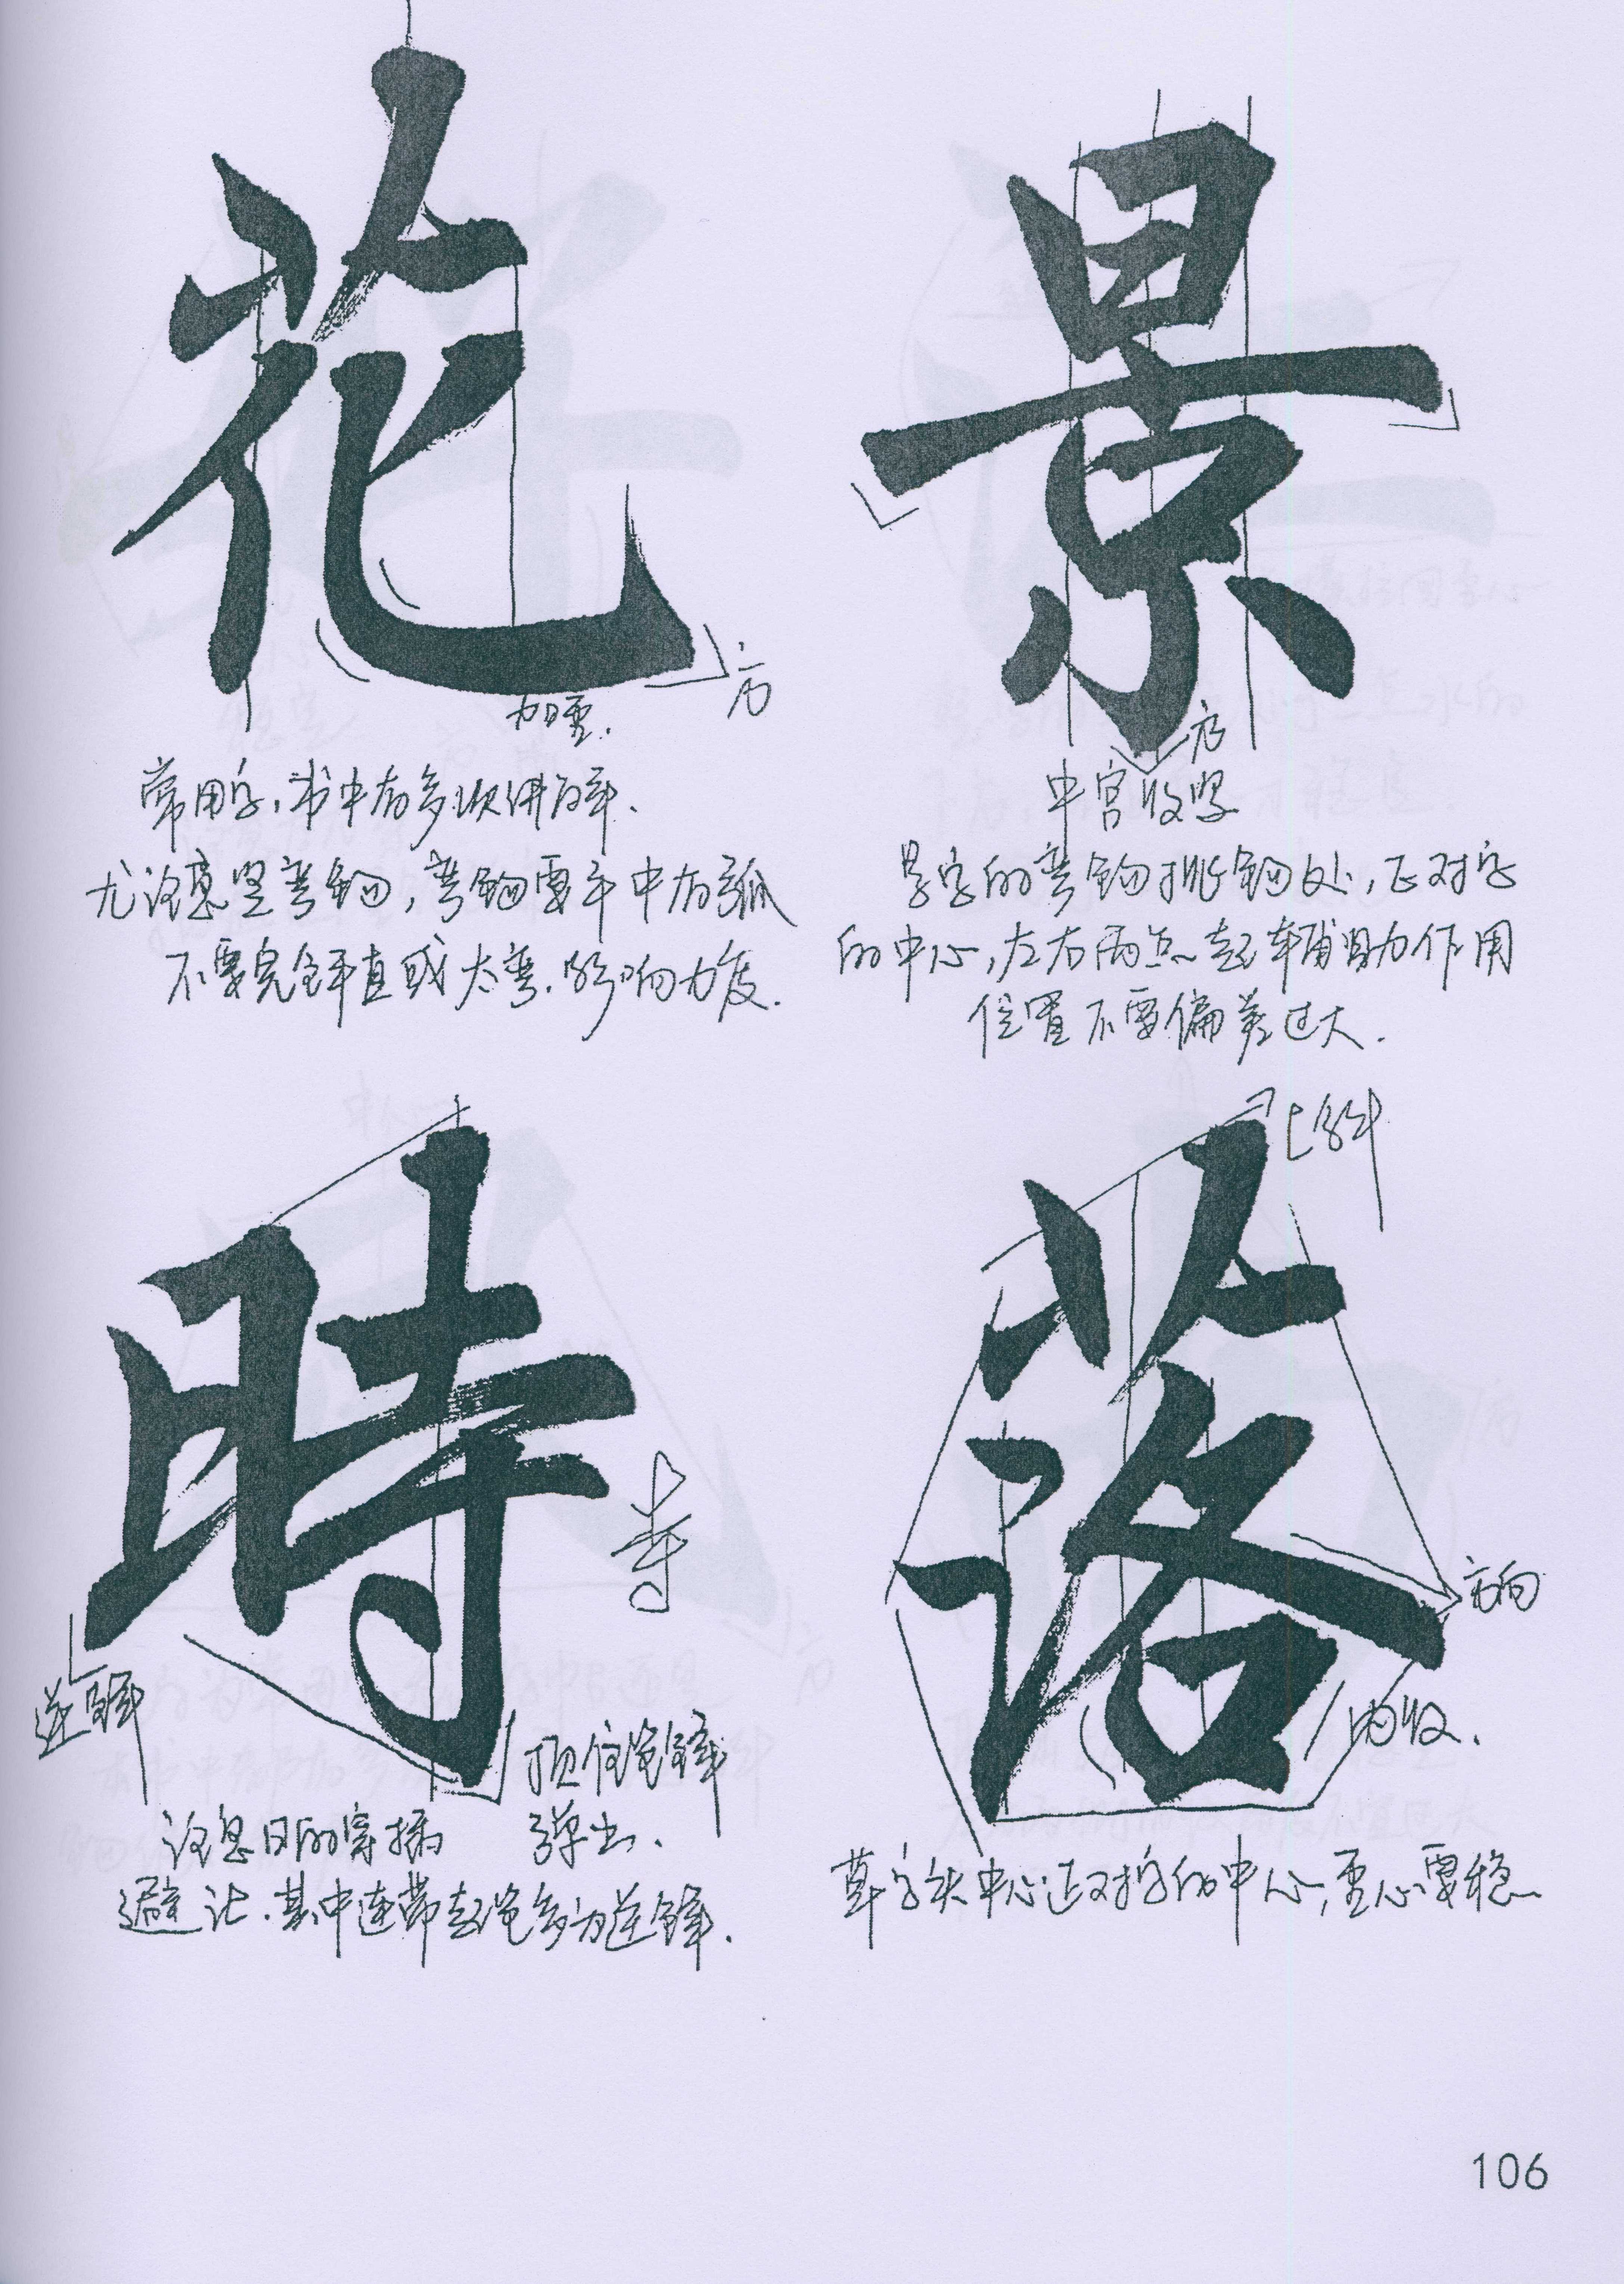 花
方
加重.
常用字,书中有多次讲解.
尤注意竖弯钩,弯钩要平中有弧
不要完全平直或太弯.影响力度.
景
方
中宫收紧
景字的弯钩挑钩处,正对字
的中心,左右两点起辅助作用
位置不要偏差过大.
時
寺
逆锋
顶住笔锋
弹出.
注意日的穿插
避让.其中连带起笔多为逆锋.
落
上斜
方向
内收.
草字头中心正对字的中心,重心要稳
106